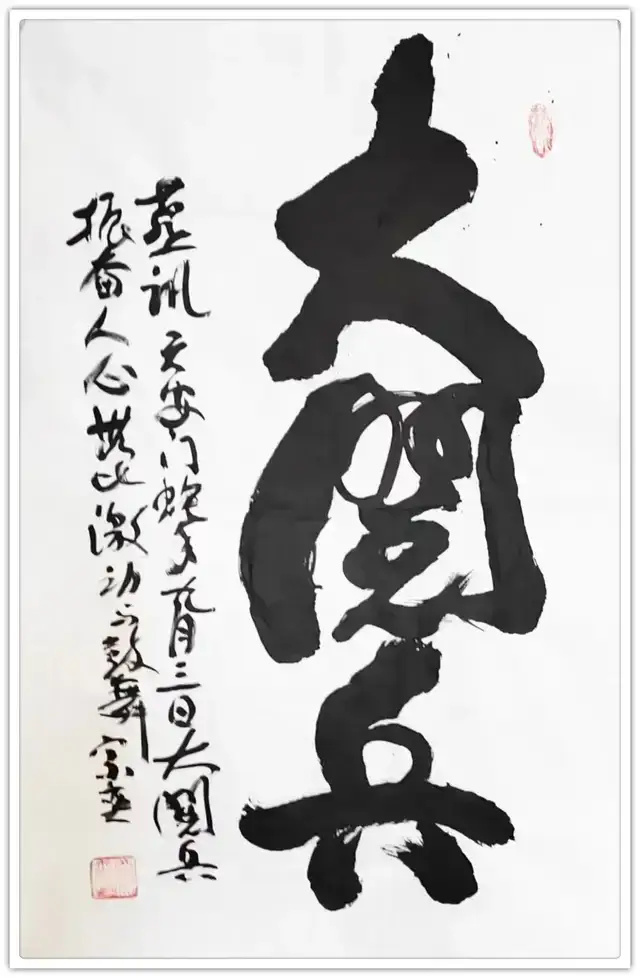 大閱兵
訊天安门蛇年九月三日大閱兵
振奋人心無比激动与鼓舞 宗